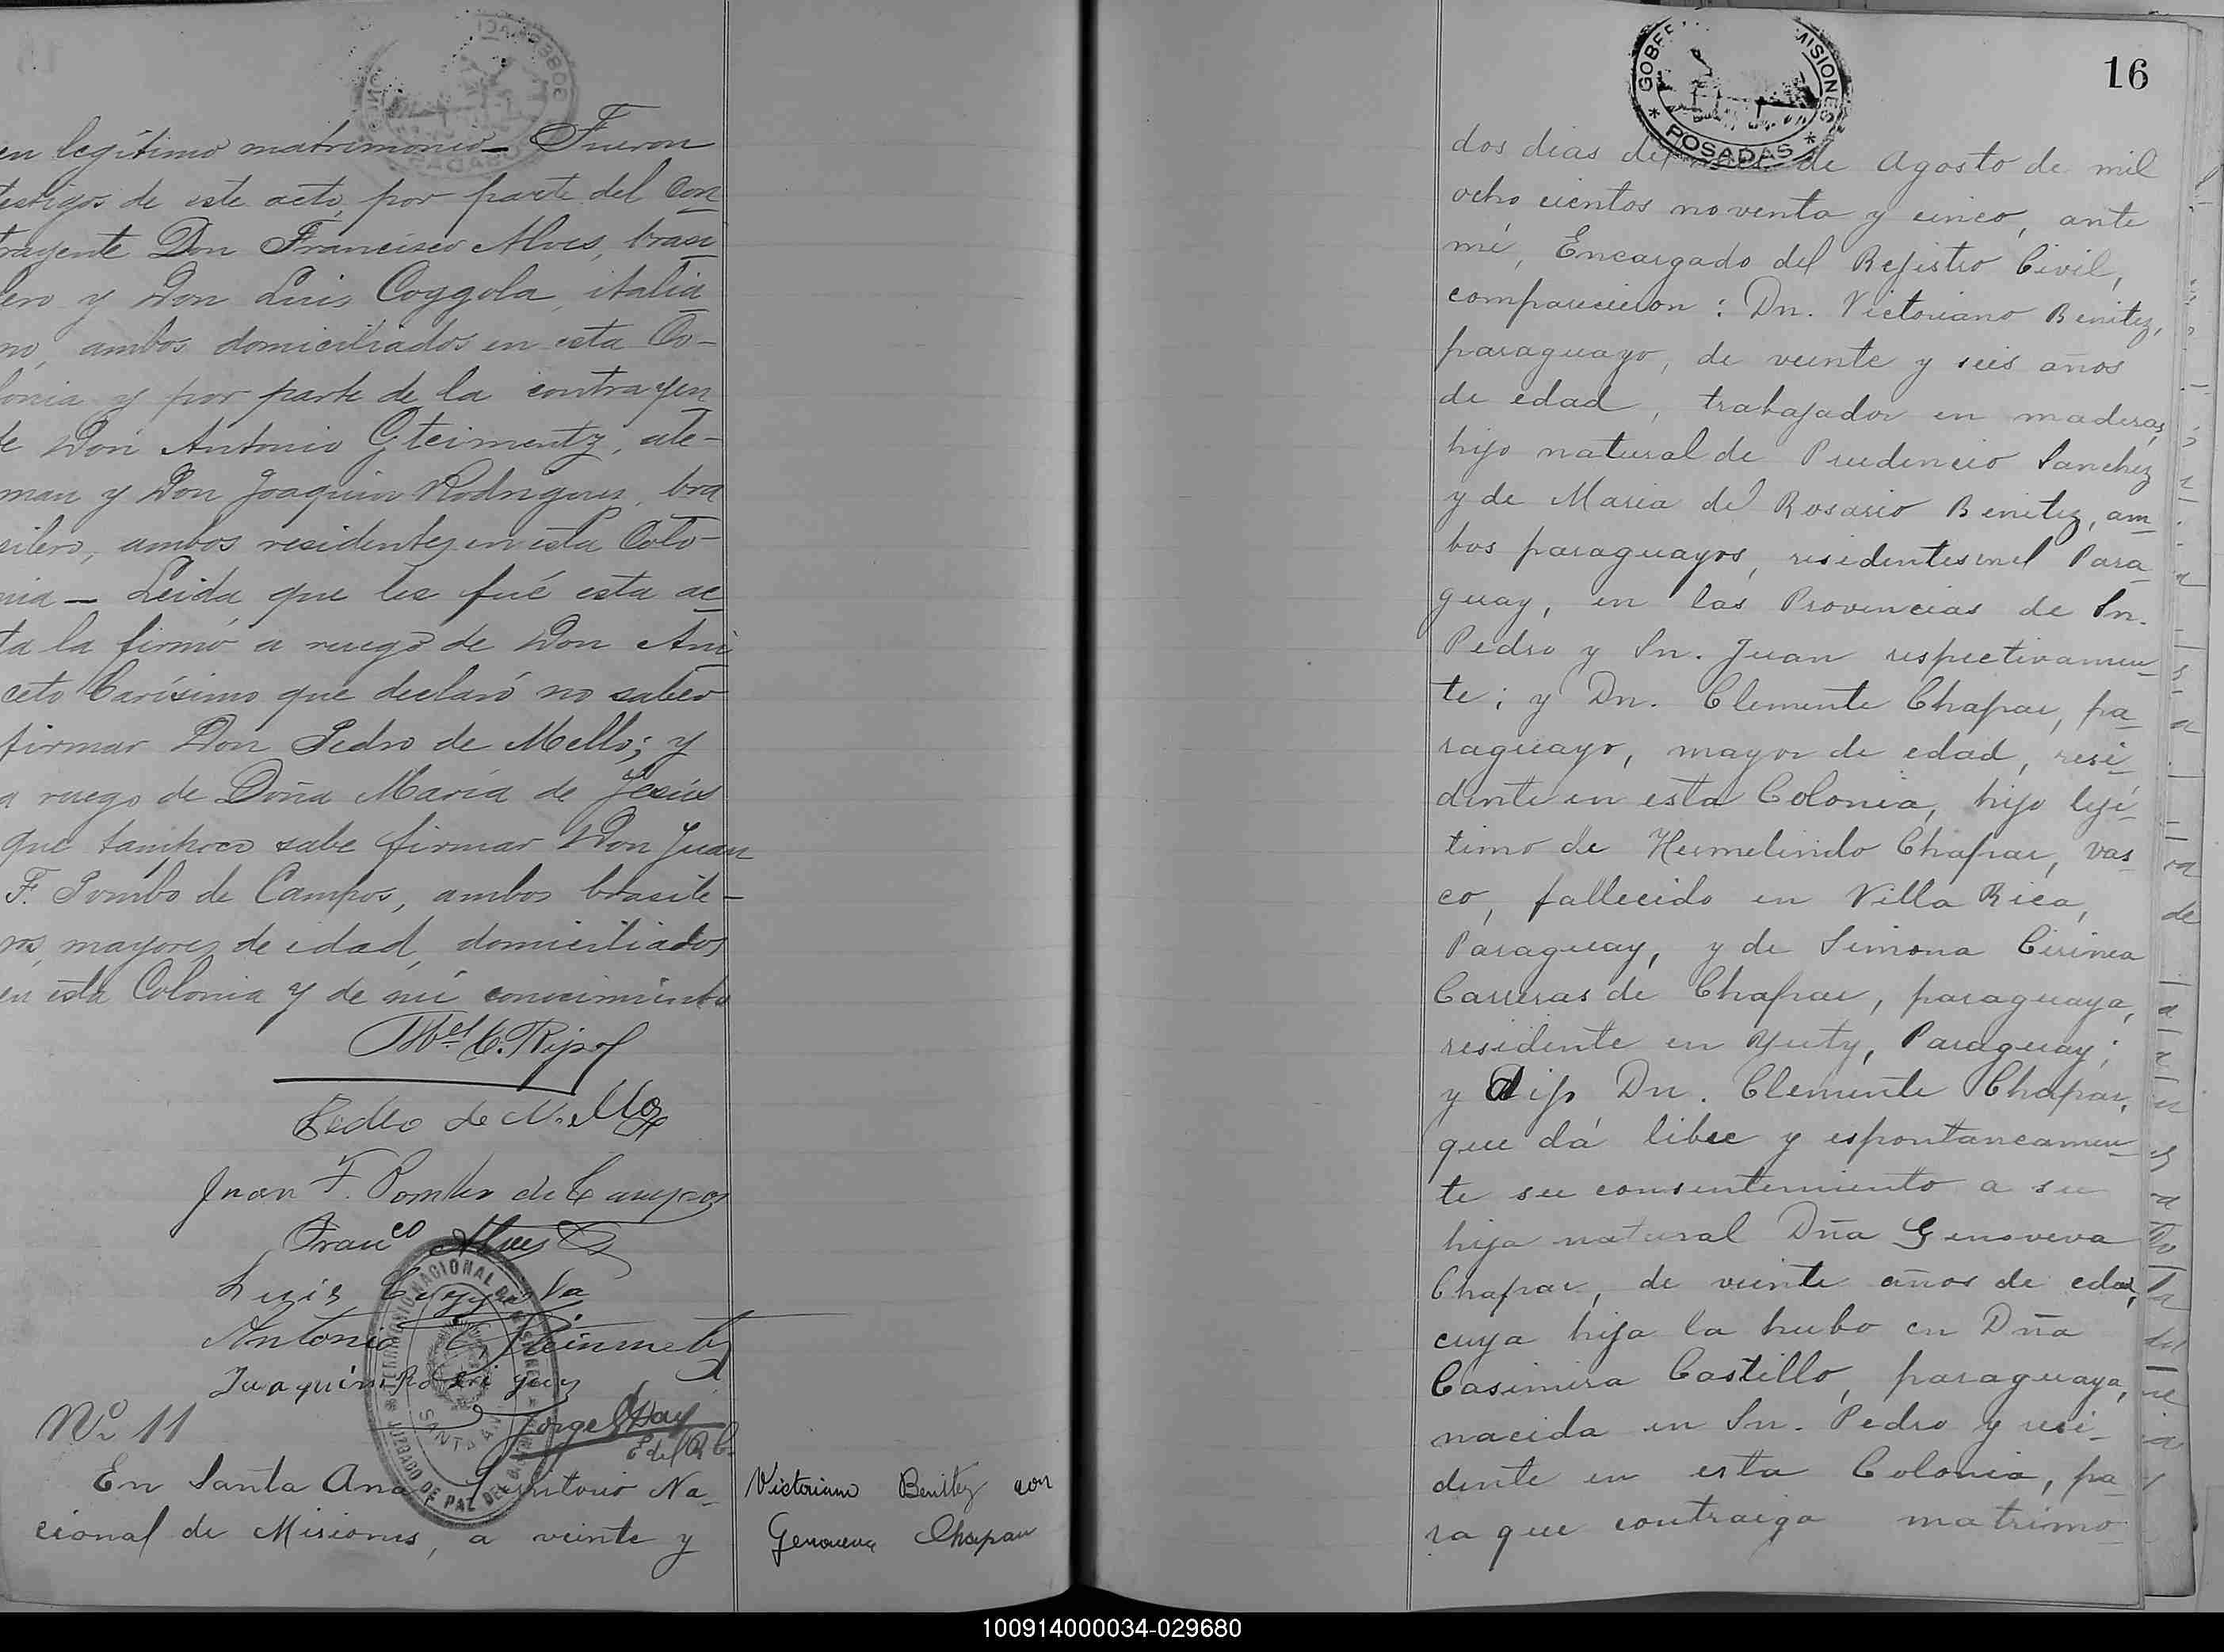 en legítimo matrimonio — Fueron
testigos de este acto, por parte del Con
trayente Don Francisco Alves, brasi
lero y Don Luis Coggola, italia
no, ambos domiciliados en esta Co-
lonia y por parte de la contrayen
te Don Antonio Gteimentz, ale-
man y Don Joaquin Rodrigues, bra
silero, ambos residentes en esta Colo-
nia — Leida que les fué esta ac
ta la firmó a ruego de Don Ani
ceto Carísimo que declaró no saber
firmar Don Pedro de Mello; y
a ruego de Doña María de Jesús
que tampoco sabe firmar Don Juan
F. Pombo de Campos, ambos brasile-
ros, mayores de edad, domiciliados
en esta Colonia y de mi conocimiento
Pedro de
Juan F. Pombo de Campos
Franco Alves
Luis Coggola
Antonio Steinmetz
Juaquim Rodriguez
Jorge
E del R C.
TERRITORIO NACIONAL DE MISIONES
SANTA ANA
JUZGADO DE PAZ DEL
Nº 11
En Santa Ana, Territorio Na-
cional de Misiones, a veinte y
Victoriano Benitez con
Genoveva Chapar
16
GOBER MISIONES
* POSADAS *
dos dias del mes de Agosto de mil
ocho cientos noventa y cinco, ante
mí, Encargado del Rejistro Civil,
comparecieron: Dn. Victoriano Benitez,
paraguayo, de veinte y seis años
de edad, trabajador en maderas,
hijo natural de Prudencio Sanchez
y de Maria del Rosario Benitez, am
bos paraguayos, residentes en el Para-
guay, en las Provincias de Sn.
Pedro y Sn. Juan respectivamen-
te; y Dn. Clemente Chapar, pa-
raguayo, mayor de edad, resi-
dente en esta Colonia, hijo lejí-
timo de Hermelindo Chapar, vas
co, fallecido en Villa Rica,
Paraguay, y de Simona Cirinea
Carreras de Chapar, paraguaya,
residente en Yuty, Paraguay;
y dijo Dn. Clemente Chapar,
que dá libre y espontaneamen-
te su consentimiento a su
hija natural Dña Genoveva
Chapar, de veinte años de edad,
cuya hija la hubo en Dña
Casimira Castillo, paraguaya,
nacida en Sn. Pedro y resi-
dente en esta Colonia, pa-
ra que contraiga matrimo-
100914000034-029680